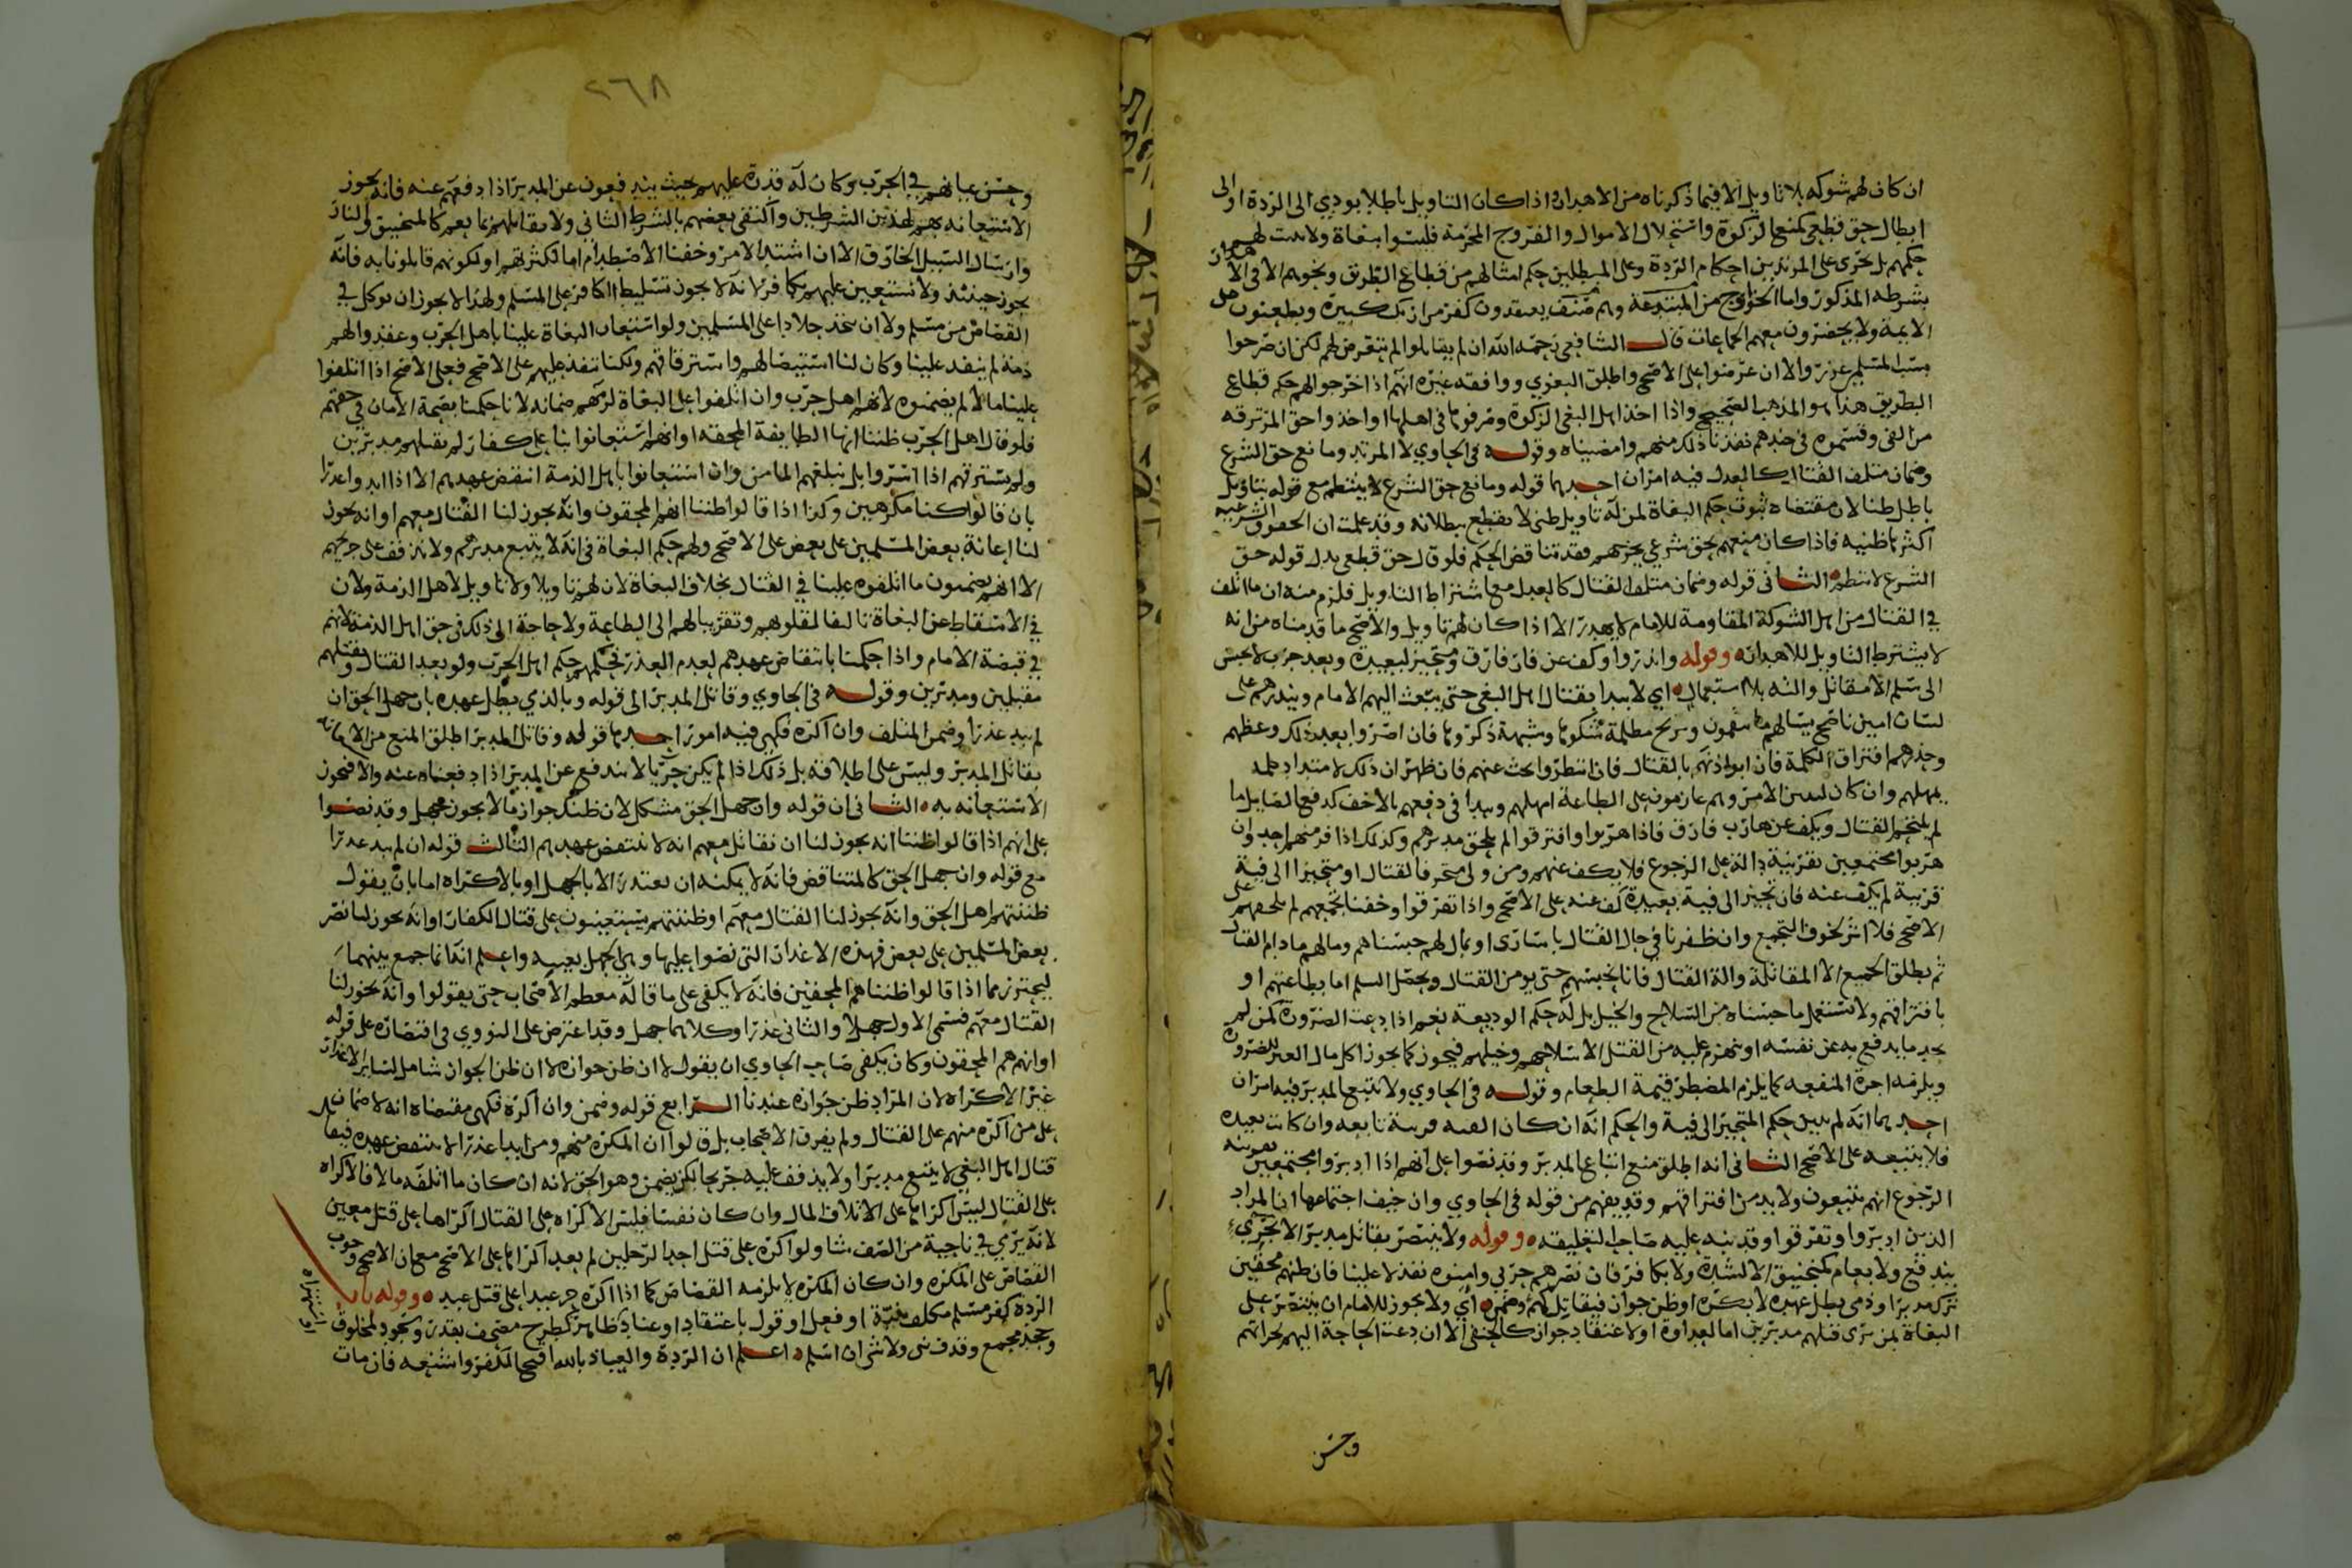 ان كان لهم شوكه بلا تاويل الا فيما ذكرناه من الاهدار واذا كان التاويل باطلا يودي الى الردة او الى
ابطال حق قطعي كمنع الزكوة واستحلال الاموال والفروج المحرمة فليسوا ببغاة ولا يثبت لهم
حكمهم بل يجرى على المرتدين احكام الردة وعلى المبطلين حكم امثالهم من قطاع الطريق ونحوهم الا في الاهدار
بشرطه المذكور واما الخوارج من المبتدعة وهم صنف يعتقدون كفر مرتكب كبيرة ويطعنون على
الايمة ولا يحضرون معهم الجماعات قال الشافعي رحمه الله ان لم يقاتلوا لم نتعرض لهم لكن ان صرحوا
بسب المسلم عزروا لا ان عرضوا على الاصح واطلق البغوي ووافقه غيره انهم اذا خرجوا لهم حكم قطاع
الطريق هذا هو المذهب الصحيح واذا اخذ اهل البغي الزكوة وفرقوها في اهلها او اخذوا حق المرتزقه
من الفى وقسموه في جندهم نفذنا ذلك منهم وامضيناه وقوله في الحاوي لا المرتد ومانع حق الشرع
وضمان متلف القتال كالعدل فيه امران احدهما قوله ومانع حق الشرع لا ينتظم مع قوله بتاويل
باطل ظنا لان مقتضاه ثبوت حكم البغاة لمن له تاويل ظني لا يقطع ببطلانه وقد علمت ان الحقوق الشرعيه
اكثرها ظنيه فاذا كان منعهم بحق شرعي يخرجهم فقد تناقض الحكم فلو قال حق قطعي بدل قوله حق
الشرع لانتظم الثاني قوله وضمان متلف القتال كالعدل مع اشتراط التاويل فلزم منه ان ما اتلف
في القتال من اهل الشوكة المقاومة للامام لا يهدر الا اذا كان لهم تاويل والاصح ما قدمناه من انه
لا يشترط التاويل للاهدار وقوله وانذروا وكف عن فار فارق ومتحيز لبعيدة وبعد حرب لا حبس
الى سلم الا مقاتل والته بلا استعمال اي لا يبدا بقتال اهل البغي حتى يبعث اليهم الامام وينذرهم على
لسان امين ناصح يسالهم ما ينقمون ويزيح مظلمة شكوها وشبهة ذكروها فان اصروا بعد ذلك وعظهم
وحذرهم افتراق الكلمة فان ابوا اذنهم بالقتال فان انتظروا بحث عنهم فان ظهر ان ذلك لاستبداد
يمهلهم وان كان لتبين الامر وهم عازمون على الطاعة امهلهم ويبدا في دفعهم بالاخف كدفع الصايل ما
لم يلتحم القتال ويكف عن هارب فارق فاذا هربوا وافترقوا لم يلحق مدبرهم وكذلك اذا فر منهم احد وان
هربوا مجتمعين بقرينة دالة على الرجوع فلا يكف عنهم ومن ولى متحرفا لقتال او متحيزا الى فية
قريبة لم يكف عنه فان تحيز الى فية بعيدة كف عنه على الاصح واذا تفرقوا وخفنا تجمعهم لم يلحقهم على
الاصح فلا اثر لخوف التجمع وان ظفرنا في حال القتال باسارى او مال لهم حبسناهم ومالهم مادام القتال
ثم يطلق الجميع الا المقاتلة والة القتال فانا نحبسهم حتى يومن القتال ويحصل السلم اما بطاعتهم او
بافتراقهم ولا تستعمل ما حبسناه من السلاح والخيل بل له حكم الوديعة نعم اذا دعت الضرورة كمن لم
يجد ما يدفع به عن نفسه او ينهزم عليه من القتل الا سلاحهم وخيلهم فيجوز كما يجوز اكل مال الغير للضرورة
ويلزمه اجرة المنفعه كما يلزم المضطر قيمة الطعام وقوله في الحاوي ولا يتبع المدبر فيه امران
احدهما انه لم يبين حكم المتحيز الى فية والحكم انه ان كان الفيه قريبة تابعه وان كانت بعيدة
فلا يتبعه على الاصح الثاني انه اطلق منع اتباع المدبر وقد نصوا على انهم اذا ادبروا مجتمعين بقرينه
الرجوع انهم يتبعون ولا بد من افتراقهم وقد يفهم من قوله في الحاوي وان خيف اجتماعها ان المراد
الذين ادبروا وتفرقوا وقد نبه عليه صاحب التعليقه وقوله ولا ينتصر بقاتل مدبر الا لجريء
يندفع ولا بعام كمنجنيق الا لشدة ولا بكافر فان نصرهم حربي وامنوه نفذ لا علينا فان ظنهم محقين
ترك مدبرا وذمي بطل عهده لا بكره او ظن جواز فيقاتل كهم وضمن اي ولا يجوز للامام ان ينتصر على
البغاة بمن يرى قتلهم مدبرين اما لعداوة او لاعتقاد جواز كالحنفي الا ان دعت الحاجة اليهم لجراتهم
وحسن
٢٦٨
وحسن عنائهم في الحرب وكان له قدرة عليهم بحيث يندفعون عن المدبر اذا دفعهم عنه فانه يجوز
الاستعانه بهم لهذين الشرطين واكتفى بعضهم بالشرط الثاني ولا يقاتلهم بما يعم كالمنجنيق والنار
وارسال السيل الخارق الا ان اشتد الامر وخفنا الاصطدام اما لكثرتهم او لكونهم قاتلونا به فانه
يجوز حينئذ ولا نستعين عليهم بكافر لانه لا يجوز تسليط الكافر على المسلم ولهذا لا يجوز ان يوكل في
القصاص من مسلم ولا ان يتخذ جلادا على المسلمين ولو استعان البغاة علينا باهل الحرب وعقدوا لهم
ذمة لم ينفذ علينا وكان لنا استيصالهم واسترقاقهم ولكنا ننفذ عليهم على الاصح فعلى الاصح اذا اتلفوا
علينا مالا لم يضمنوه لانهم اهل حرب وان اتلفوا على البغاة لزمهم ضمانه لانا حكمنا بصحة الامان في حقهم
فلو قال اهل الحرب ظننا انها الطايفة المحقه او انهم استعانوا بنا على كفار لم نقبلهم مدبرين
ولم نسترقهم اذا اسروا بل نبلغهم المامن وان استعانوا باهل الذمة انتقض عهدهم الا اذا ابدوا عذرا
بان قالوا كنا مكرهين وكذا اذا قالوا ظننا انهم المحقون وانه يجوز لنا القتال معهم او انه يجوز
لنا اعانة بعض المسلمين على بعض على الاصح ولهم حكم البغاة في انه لا يتبع مدبرهم ولا يذفف على جريحهم
الا انهم يضمنون ما اتلفوه علينا في القتال بخلاف البغاة لان لهم تاويلا ولا تاويل لاهل الذمة ولان
في الاسقاط عن البغاة تاليفا لقلوبهم وتقريبا لهم الى الطاعة ولا حاجة الى ذلك في حق اهل الذمة لانهم
في قبضة الامام واذا حكمنا بانتقاض عهدهم لعدم العذر فحكمهم حكم اهل الحرب ولو بعد القتال ونقتلهم
مقبلين ومدبرين وقوله في الحاوي وقاتل المدبر الى قوله وبالذي بطل عهده بان جهل الحق ان
لم يبد عذرا وضمن المتلف وان اكره فكهي فيه امور احدها قوله وقاتل المدبر اطلق المنع من الاستعانه
بقاتل المدبر وليس على اطلاقه بل ذلك اذا لم يكن جريا لا يندفع عن المدبر اذا دفعناه عنه والا فيجوز
الاستعانه به الثاني ان قوله وان جهل الحق مشكل لان ظنك جواز ما لا يجوز جهل وقد نصوا
على انهم اذا قالوا ظننا انه يجوز لنا ان نقاتل معهم انه لا ينتقض عهدهم الثالث قوله ان لم يبد عذرا
مع قوله وان جهل الحق كالمتناقض فانه لا يمكنه ان يعتذر الا بالجهل او بالاكراه اما بان يقول
ظننتهم اهل الحق وانه يجوز لنا القتال معهم او ظننتهم يستعينون على قتال الكفار او انه يجوز لنا نصر
بعض المسلمين على بعض فهذه الاعذار التي نصوا عليها وهي الجهل بعينه واعلم انه انما جمع بينهما
ليحترز مما اذا قالوا ظنناهم المحقين فانه لا يكفي على ما قاله معظم الاصحاب حتى يقولوا وانه يجوز لنا
القتال معهم فسمى الاول جهلا والثاني عذرا وكلاهما جهل وقد اعترض على النووي في اقتصاره على قوله
او انهم هم المحقون وكان يكفي صاحب الحاوي ان يقول لا ان ظن جوازه لا ان ظن الجواز شامل لساير الاعذار
غير الاكراه لان المراد ظن جوازه عندنا الرابع قوله وضمن وان اكره فكهي مقتضاه انه لا ضمان
على من اكره منهم على القتال ولم يفرق الاصحاب بل قالوا ان المكره منهم ومن ابدا عذرا لا ينتقض عهده فيقاتل
قتال اهل البغي لا يتبع مدبرا ولا يذفف عليه جريحا لكن يضمن وهو الحق لانه ان كان ما اتلفه مالا فالاكراه
على القتال ليس اكراها على الاتلاف المال وان كان نفسا فليس الاكراه على القتال اكراها على قتل معين
لانه يرمي في ناحية من الصف شا ولو اكره على قتل احد الرجلين لم يعد اكراها على الاصح مع ان الاصح وجوب
القصاص على المكره وان كان المكره لا يلزمه القصاص كما اذا اكره حر عبدا على قتل عبد وقوله باب
الردة كفر مسلم مكلف بنية او فعل او قول باعتقاد او عناد ظاهر كطرح مصحف بقذر وسجود لمخلوق
وجحد مجمع وقذف نبي ولا شي ان اسلم اعلم ان الردة والعياذ بالله اقبح الكفر واشنعه فان مات